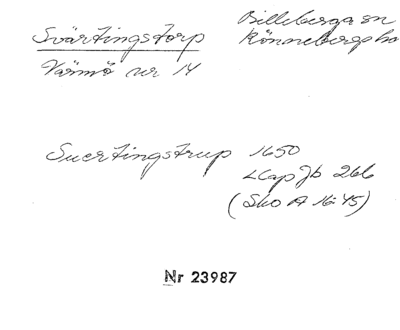 Svärtingstorp
Värmö nr 14
Billeberga sn
Rönnebergs hd
Suertingstrup 1650
LCap Jb 266
(Sko A 16:45)
Nr 23987